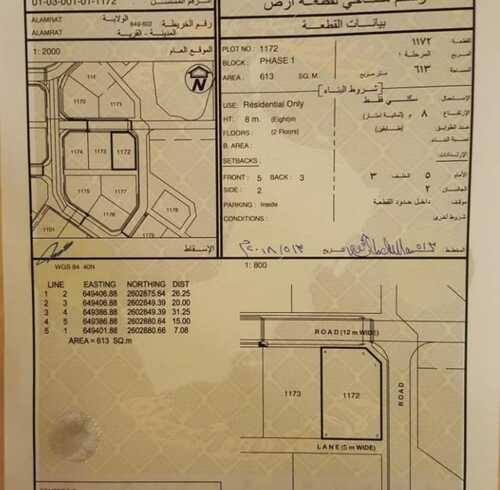 01-03-001-01-1172
ALAMRAT الولاية
649-602 رقم الخريطة
ALAMRAT المدينة - القرية
1: 2000 الموقع العام
N
1170
1171
1173
1172
1174
1175
1177
1176
1178
الإسقاط
بيانات القطعة
PLOT NO : 1172 ١١٧٢ القطعة
BLOCK : PHASE 1 المرحلة ١ المربع
AREA : 613 SQ. M متر مربع ٦١٣ المساحة
شروط البناء
USE: Residential Only سكني فقط الاستعمال
HT: 8 m. (Eight)m ٨ م (ثمانية أمتار) الارتفاع
FLOORS: (2 Floors) (طابقين) عدد الطوابق
B. AREA : نسبة البناء
SETBACKS : الإرتدادات:
FRONT : 5 BACK : 3 ٣ الخلف ٥ الأمام
SIDE : 2 ٢ الجانبان
PARKING : Inside داخل حدود القطعة موقف
CONDITIONS : شروط أخرى
المخطط
WGS 84 40N
1: 800
LINE EASTING NORTHING DIST
1 2 649406.88 2602875.64 26.25
2 3 649406.88 2602849.39 20.00
3 4 649386.88 2602849.39 31.25
4 5 649386.88 2602880.64 15.00
5 1 649401.88 2602880.66 7.08
AREA = 613 SQ.m
ROAD (12 m WIDE)
1173
1172
ROAD
LANE (5 m WIDE)